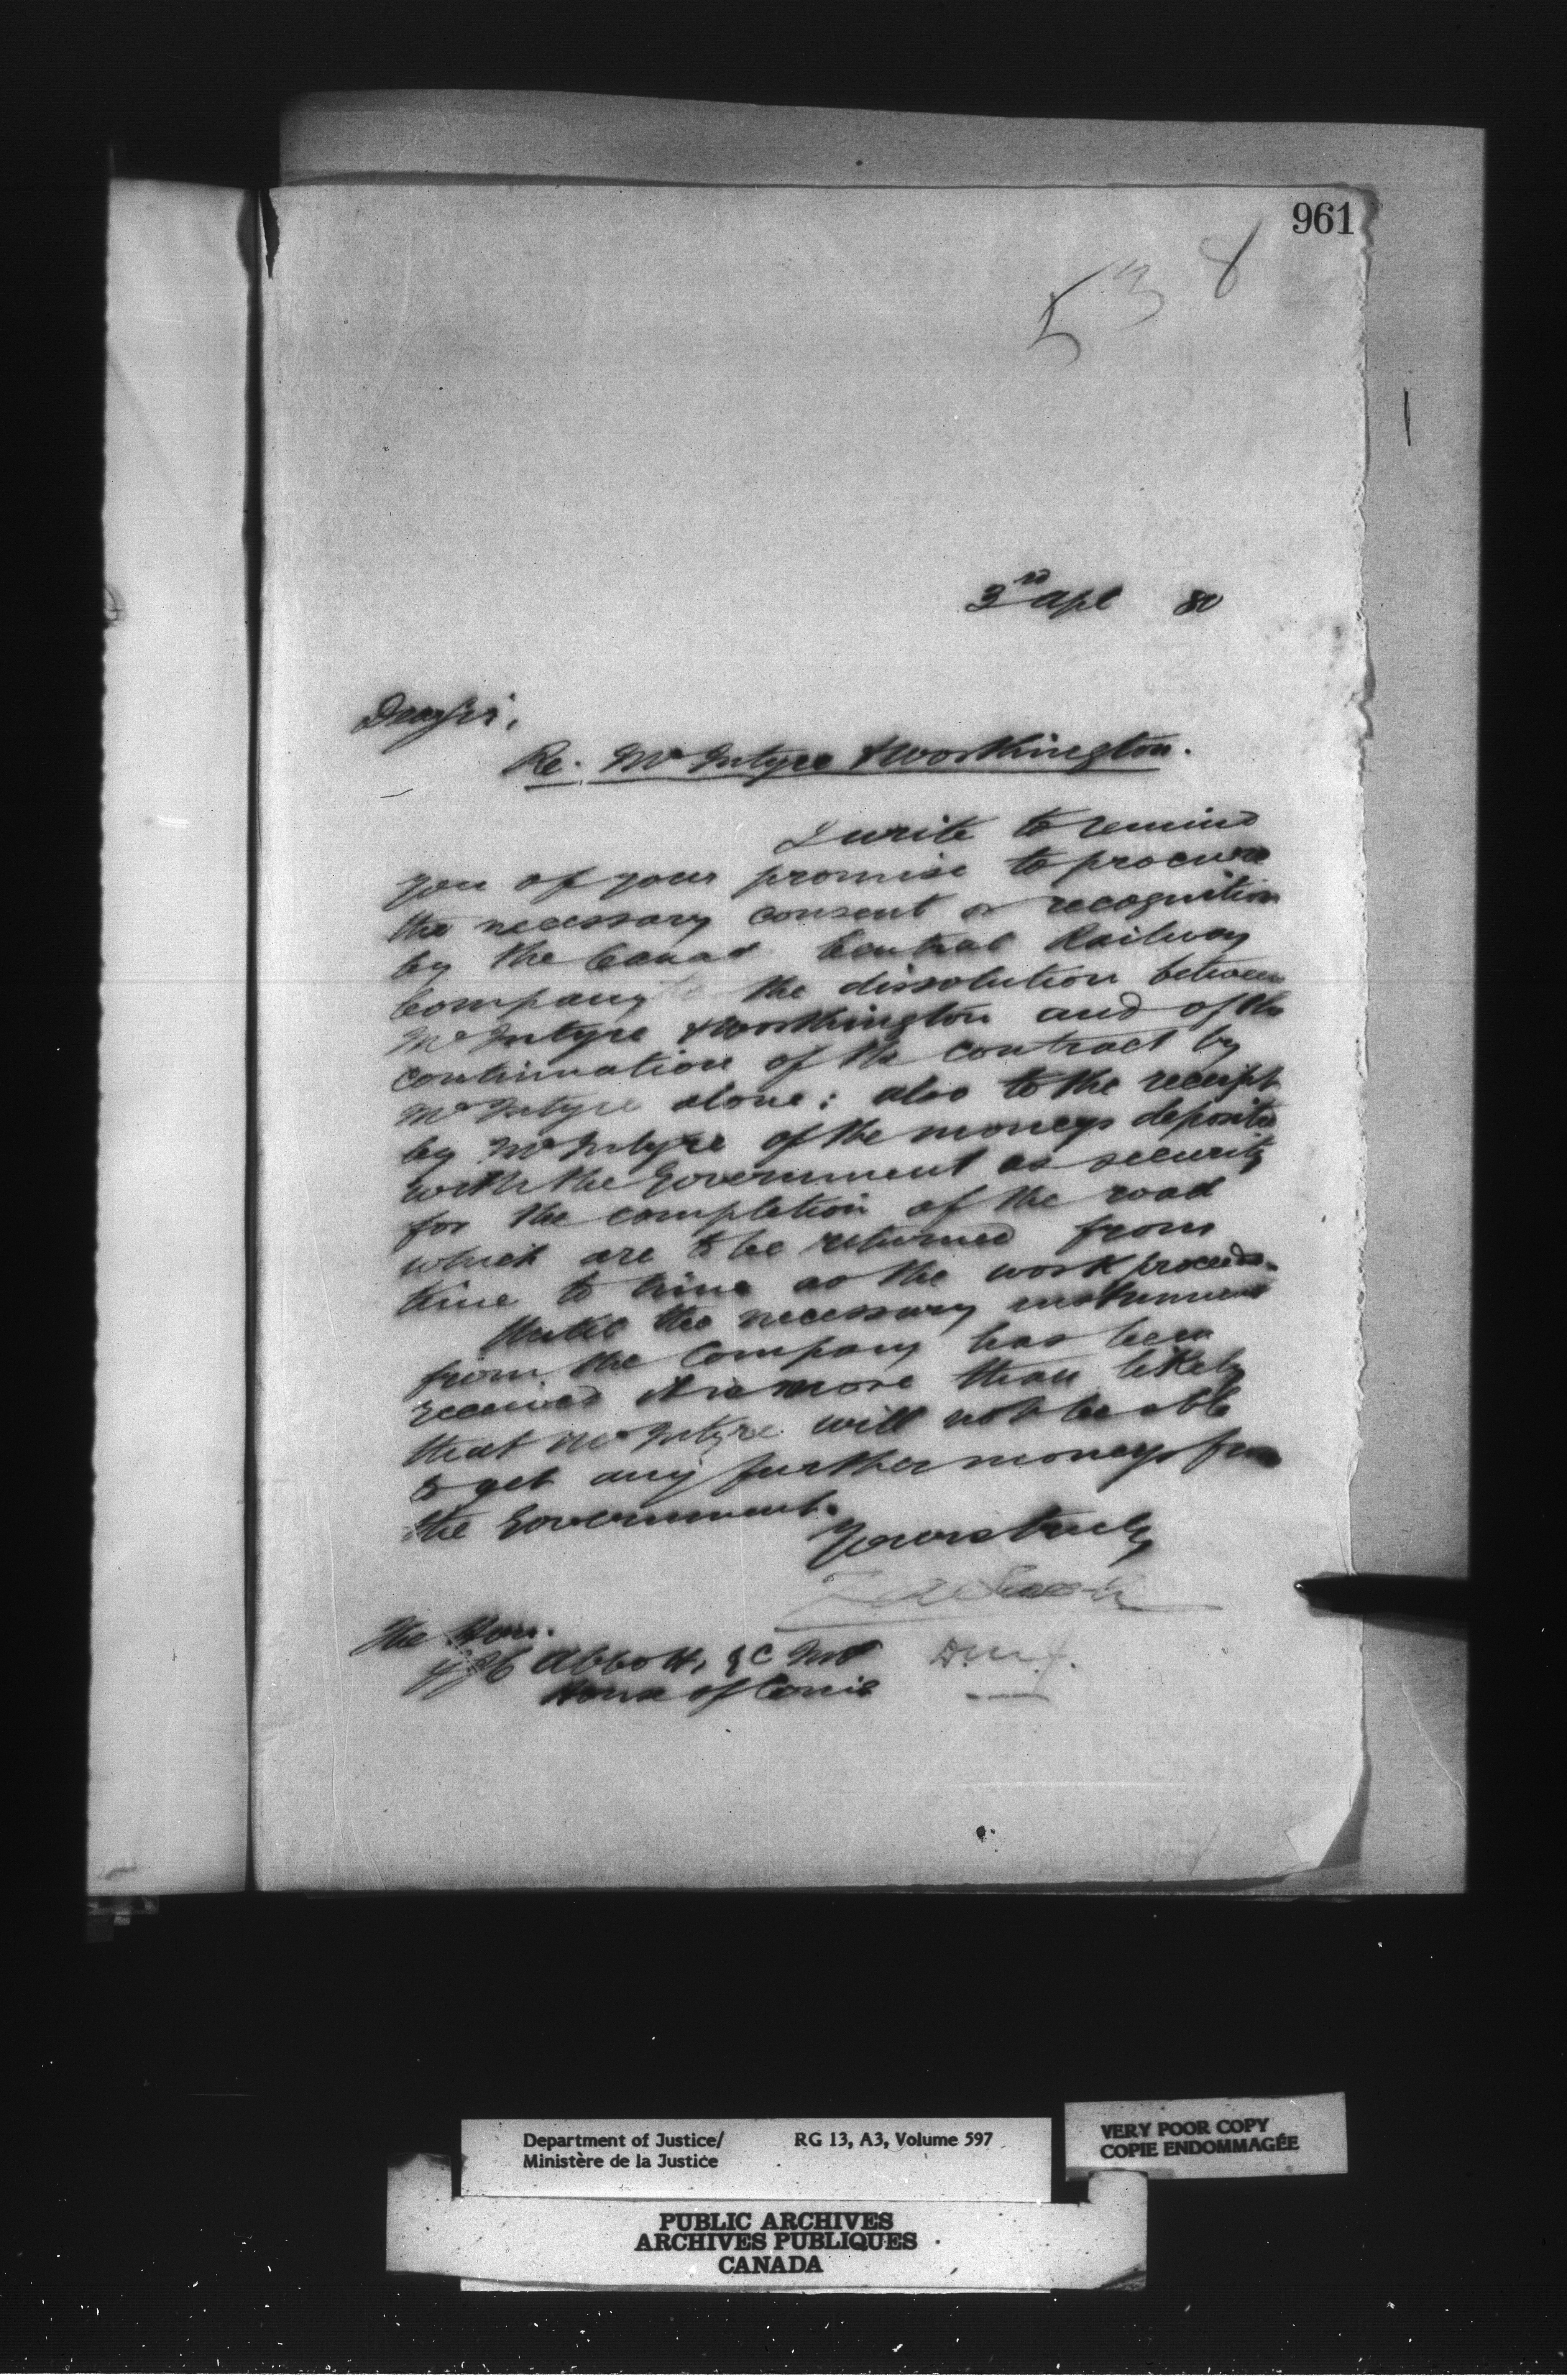 961
538
3rd Apl 80
Dear Sir,
Re. McIntyre & Worthington.
I write to remind
you of your promise to procure
the necessary consent or recognition
by the Canad Central Railway
Company the dissolution between
McIntyre & Worthington and of the
continuation of the contract by
McIntyre alone: also to the receipt
by McIntyre of the moneys deposited
with the Government as security
for the completion of the road
which are to be returned from
time to time as the work proceeds.
Until the necessary instrument
from the Company has been
received it is more than likely
that McIntyre will not be able
to get any further moneys from
the Government.
Yours truly
Z A Lash
D.M.J.
The Hon.
J J C Abbott, QC MP
House of Coms
Department of Justice/
Ministère de la Justice
RG 13, A3, Volume 597
VERY POOR COPY
COPIE ENDOMMAGÉE
PUBLIC ARCHIVES
ARCHIVES PUBLIQUES
CANADA